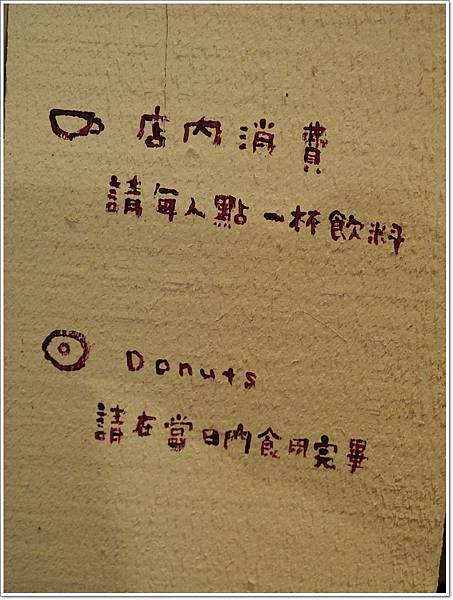 店內消費
請每人點一杯飲料
Donuts
請在當日內食用完畢